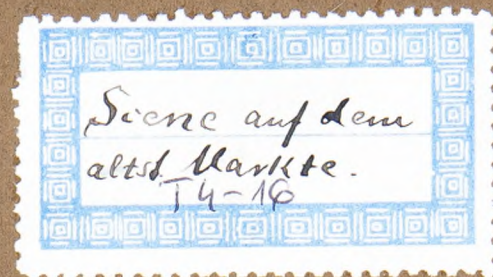 Siene auf dem
altst. Markte.
T4-16